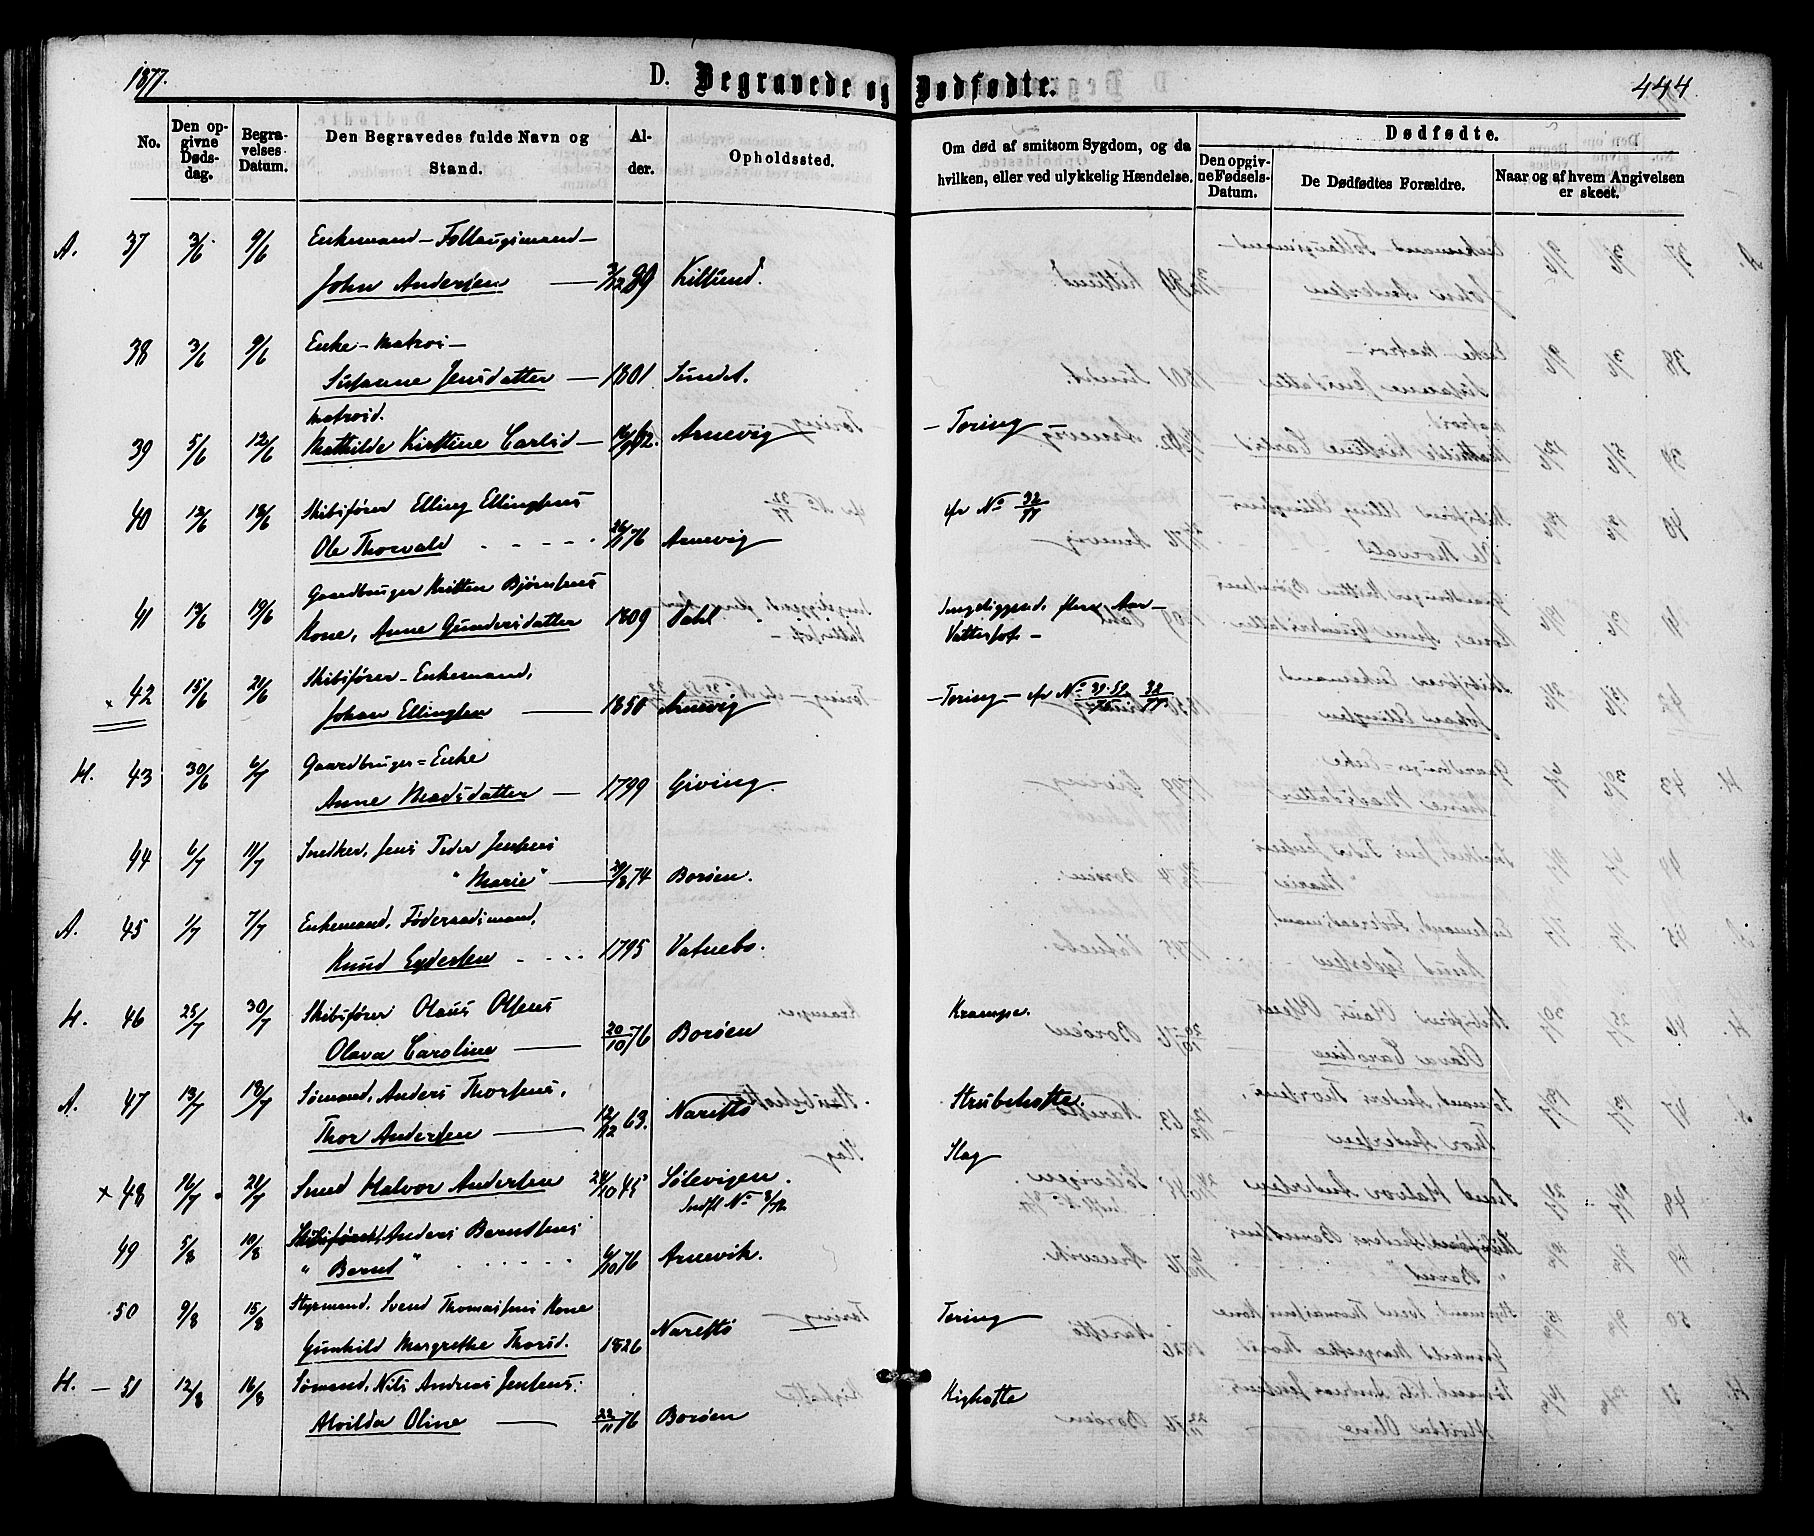 1877. D. Begravede og Dødfødte. 444.
No. Den opgivne Dødsdag. Begravelses Datum. Den Begravedes fulde Navn og Stand. Alder. Opholdssted. Om død af smitsom Sygdom, og da hvilken, eller ved ulykkelig Hændelse. Dødfødte.
Den opgivne Fødsels-Datum. De Dødfødtes Forældre. Naar og af hvem Angivelsen er skeet.
A. 37 3/6 9/6 Enkemand - Follaugsmand -
John Andersen 3/12 89 Kiltund.
38 3/6 9/6 Enke - Matros -
Susanne Jensdatter 1801 Sundet.
Matrosd.
39 5/6 12/6 Mathilde Kirstine Carlsd 62. Arnevig - Tæring -
40 12/6 18/6 Skibsfører Elling Ellingsens
Ole Thorvald 26/11 76 Arnevig cfr No 32/77
41 13/6 19/6 Gaardbruger Kristen Bjørnsens
Kone, Anne Gundersdatter 1809 Dahl
Sengeliggend. flere Aar -
Vattersot -
× 42 15/6 21/6 Skibsfører - Enkemand,
Johan Ellingsen 1850 Arnevig - Tæring - cfr No 39.52/76 32/77
H. 43 30/6 6/7 Gaardbruger = Enke
Anne Madsdatter 1799 Giving.
44 6/7 11/7 Snedker, Jens Peder Jensens
"Marie" 29/8 74 Borøen.
A. 45 1/7 7/7 Enkemand, Føderaadsmand,
Knud Eydersen 1795 Vatnebo.
H. 46 25/7 30/7 Skibsfører Olaus Olsens
Olava Caroline 20/10 76 Borøen Krampe.
A. 47 13/7 18/7 Sømand, Anders Thorsens,
Thor Andersen 12/12 63. Narestø Strubehoste.
× 48 16/7 21/7 Smed Halvor Andersen 24/10 45 Sølevigen. Slag
Indfl No 3/78
49 5/8 10/8 Skibsføret, Anders Berntsens
"Bernt" 6/10 76 Arnevik.
50 9/8 15/8 Styrmand. Svend Thomassens Kone
Gunhild Margrethe Thorsd. 1826 Narestø Tæring
H. - 51 12/8 16/8 Sømand, Nils Andreas Jensens.
Alvilda Oline 22/11 76 Borøen Kighoste